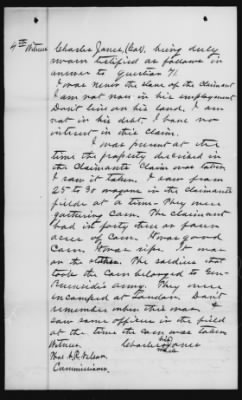 4th Witness Charlie Jones, (Col). being duly
sworn testified as follows in
answer to Question 71.
I was never the slave of the claimant
I am not now in his employment
Don't live on his land, I am
not in his debt, I have no
interest in this claim.
I was present at the
time the property described in
the Claimants Claim was taken
I saw it taken. I saw from
25 to 30 wagons in the claimants
fields at a time. They were
gathering Corn. The claimant
had in forty three or four
acres of Corn. It was good
Corn. It was ripe. It was
on the stalks. The soldiers that
took the Corn belonged to Gen
Burnside's army. They were
encamped at Loudon. Don't
remember when this was. I
saw some officers in the field
at the time the corn was taken
Witness. Charlie his x mark Jones
A. R. Nelson
Commissioner.